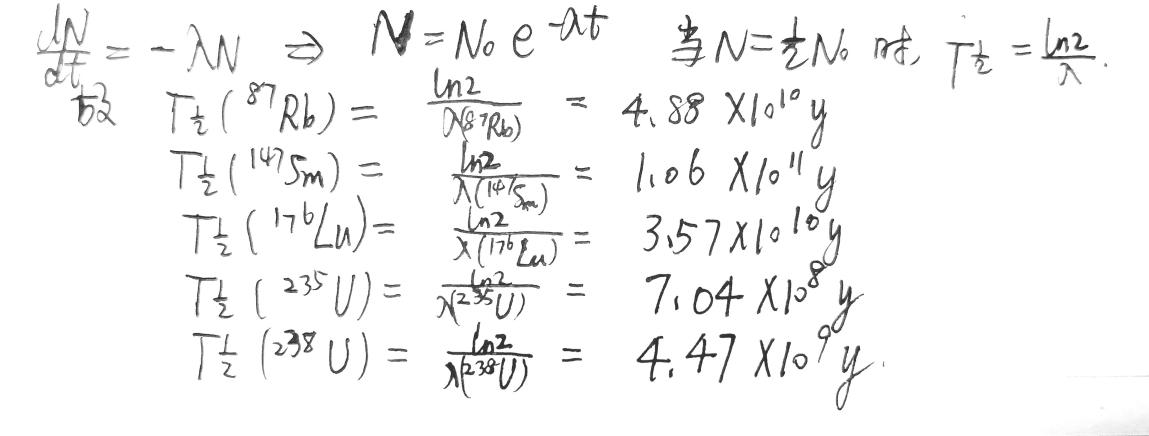 dN/dt = -λN ⇒ N = N₀ e^{-λt} 当 N = ½N₀ 时, T½ = ln2/λ.
故 T½ (⁸⁷Rb) = ln2/λ(⁸⁷Rb) = 4.88 × 10¹⁰ y
T½ (¹⁴⁷Sm) = ln2/λ(¹⁴⁷Sm) = 1.06 × 10¹¹ y
T½ (¹⁷⁶Lu) = ln2/λ(¹⁷⁶Lu) = 3.57 × 10¹⁰ y
T½ (²³⁵U) = ln2/λ(²³⁵U) = 7.04 × 10⁸ y
T½ (²³⁸U) = ln2/λ(²³⁸U) = 4.47 × 10⁹ y.